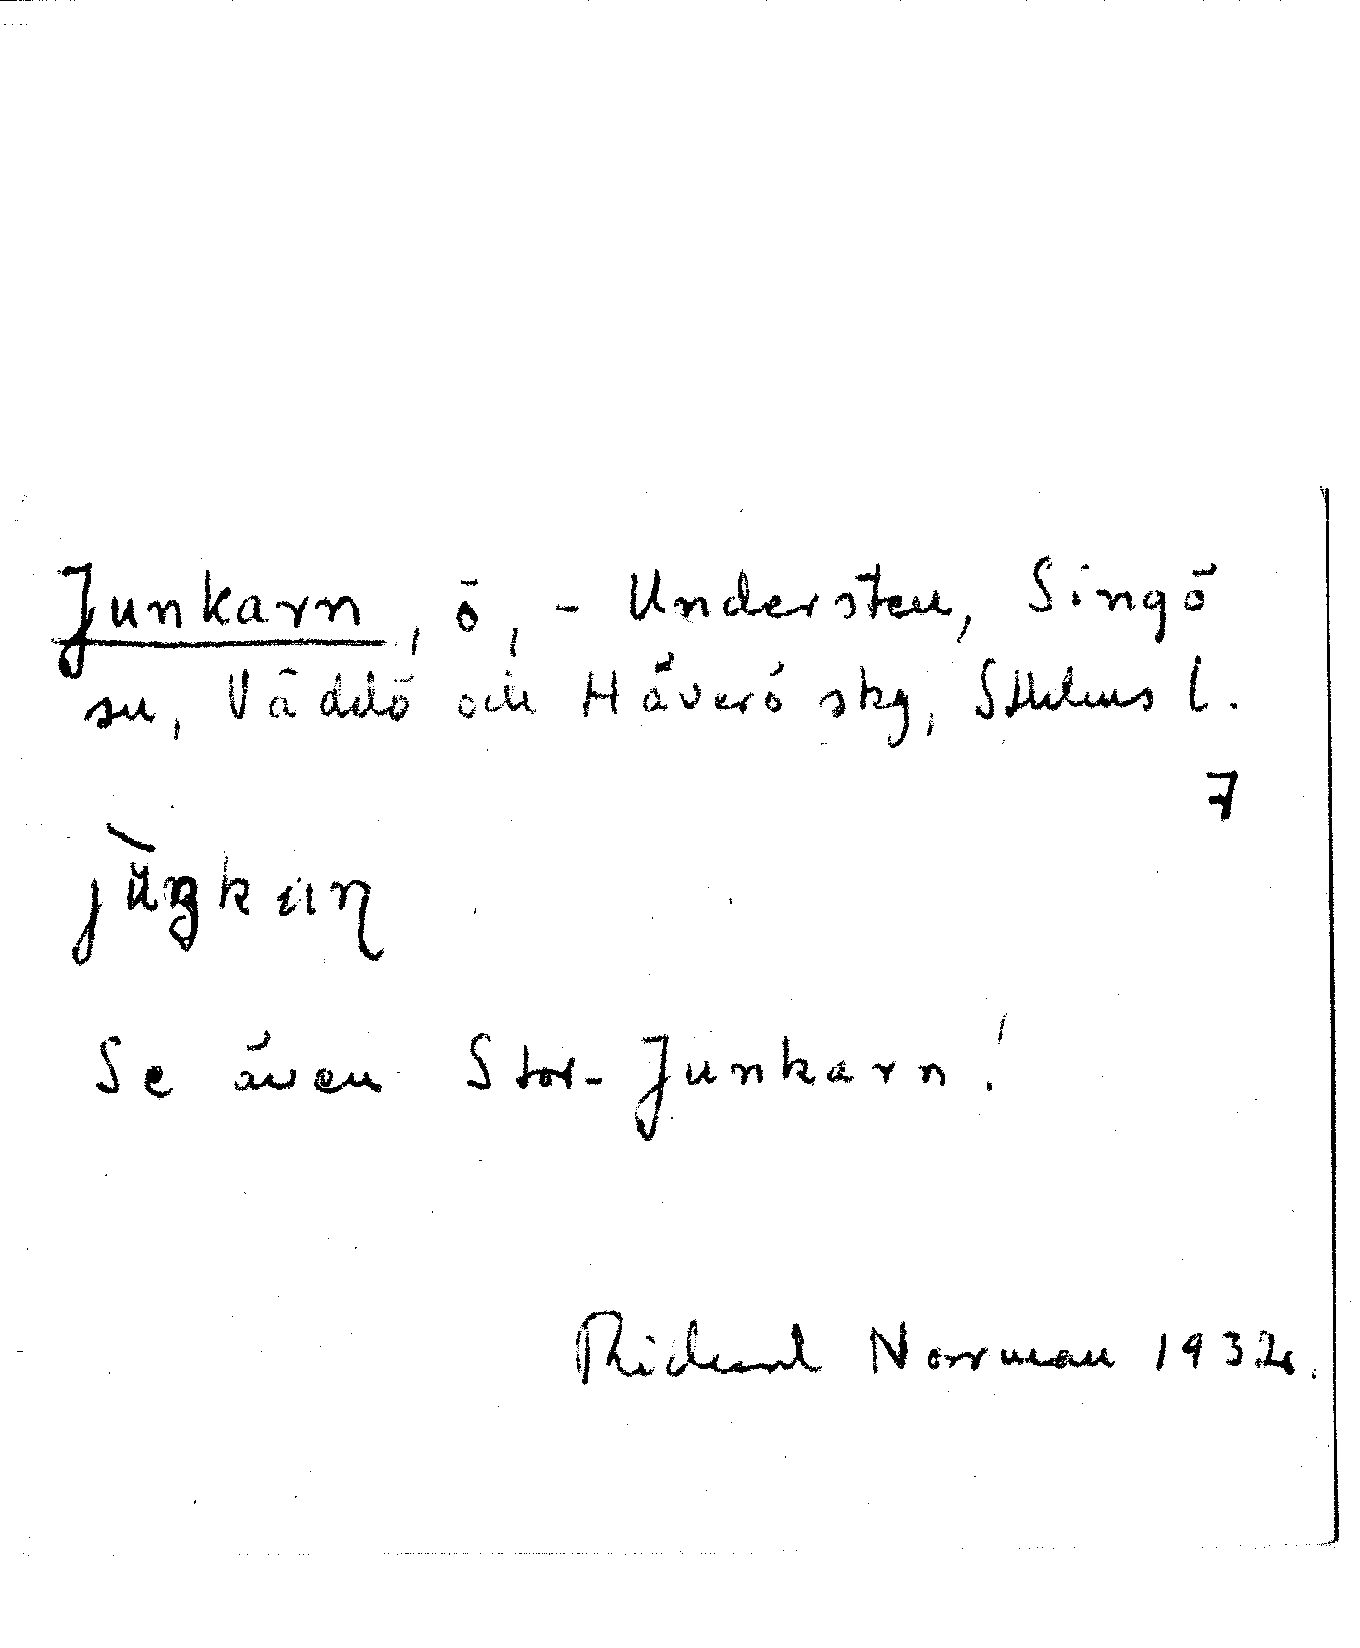 Junkarn, ö, - Understen, Singö
sn, Väddö och Häverö skg, Sthlms l.
7
Se även Stor-Junkarn!
Rickard Norrman 1932.